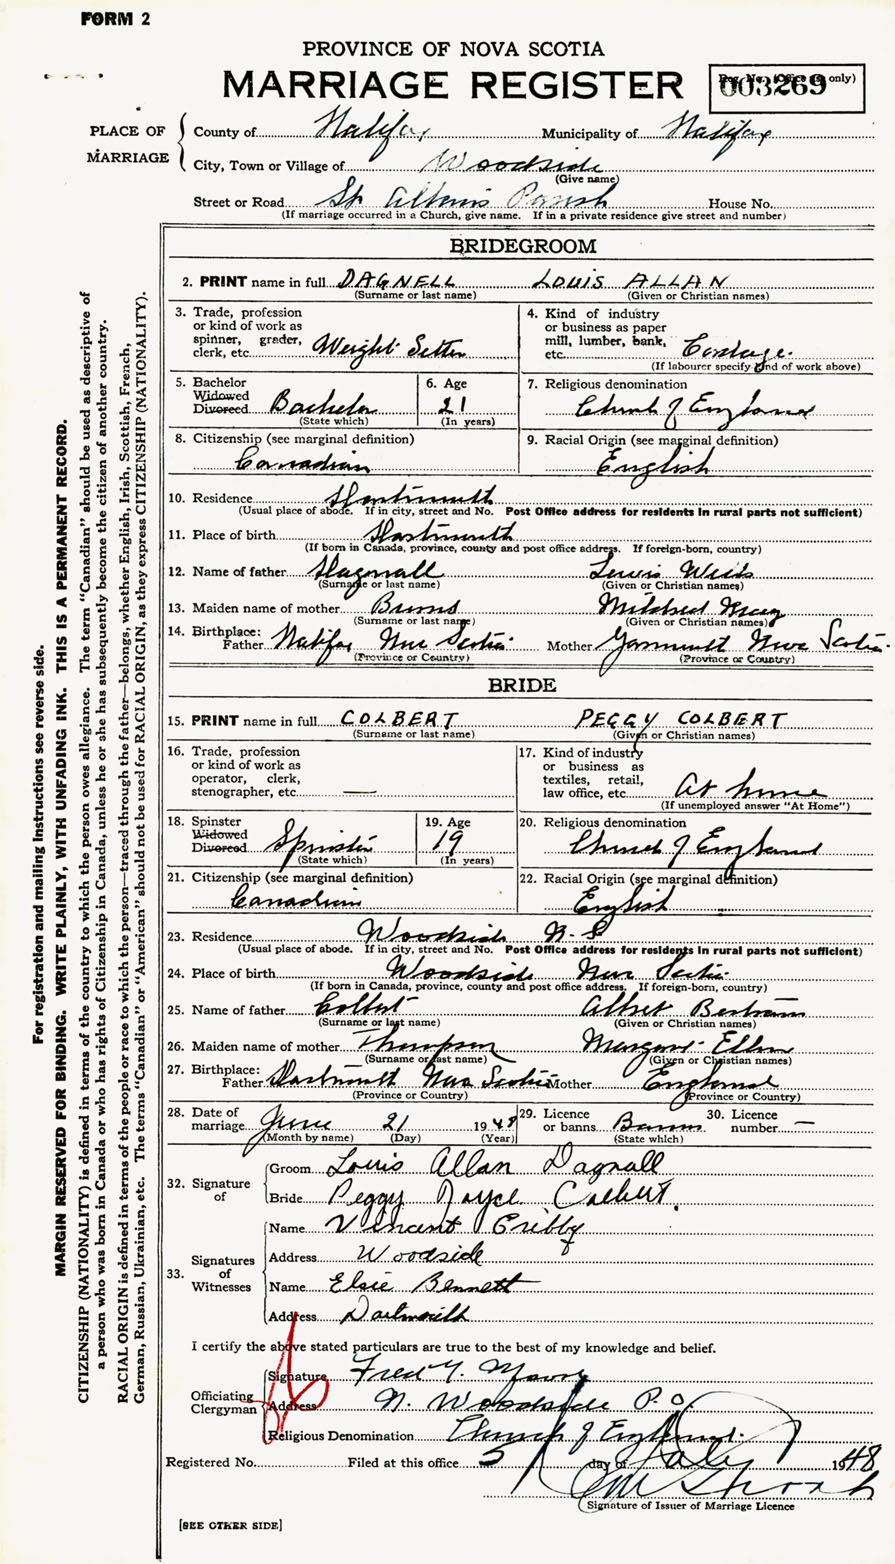 FORM 2
PROVINCE OF NOVA SCOTIA
MARRIAGE REGISTER
Reg. No. (Office use only)
003269
PLACE OF MARRIAGE
County of Halifax Municipality of Halifax
City, Town or Village of Woodside
(Give name)
Street or Road St Albans Parish House No.
(If marriage occurred in a Church, give name. If in a private residence give street and number)
BRIDEGROOM
2. PRINT name in full DAGNELL LOUIS ALLAN
(Surname or last name) (Given or Christian names)
3. Trade, profession or kind of work as spinner, grader, clerk, etc. Weight Setter
4. Kind of industry or business as paper mill, lumber, bank, etc. Cordage.
(If labourer specify kind of work above)
5. Bachelor Widowed Divorced Bachelor
(State which)
6. Age 21
(In years)
7. Religious denomination
Church of England
8. Citizenship (see marginal definition)
Canadian
9. Racial Origin (see marginal definition)
English
10. Residence Dartmouth
(Usual place of abode. If in city, street and No. Post Office address for residents in rural parts not sufficient)
11. Place of birth Dartmouth
(If born in Canada, province, county and post office address. If foreign-born, country)
12. Name of father Dagnall Louis
(Surname or last name) (Given or Christian names)
13. Maiden name of mother Burns Mildred May
(Surname or last name) (Given or Christian names)
14. Birthplace:
Father Halifax Nova Scotia Mother Yarmouth Nova Scotia
(Province or Country) (Province or Country)
BRIDE
15. PRINT name in full COLBERT PEGGY COLBERT
(Surname or last name) (Given or Christian names)
16. Trade, profession or kind of work as operator, clerk, stenographer, etc. —
17. Kind of industry or business as textiles, retail, law office, etc. At home
(If unemployed answer "At Home")
18. Spinster Widowed Divorced Spinster
(State which)
19. Age 19
(In years)
20. Religious denomination
Church of England
21. Citizenship (see marginal definition)
Canadian
22. Racial Origin (see marginal definition)
English
23. Residence Woodside N.S
(Usual place of abode. If in city, street and No. Post Office address for residents in rural parts not sufficient)
24. Place of birth Woodside Nova Scotia
(If born in Canada, province, county and post office address. If foreign-born, country)
25. Name of father Colbert Albert Bertram
(Surname or last name) (Given or Christian names)
26. Maiden name of mother Thompson Margaret Ellen
(Surname or last name) (Given or Christian names)
27. Birthplace:
Father Dartmouth Nova Scotia Mother England
(Province or Country) (Province or Country)
28. Date of marriage June 21 1948
(Month by name) (Day) (Year)
29. Licence or banns Banns
(State which)
30. Licence number —
32. Signature of
Groom Louis Allan Dagnall
Bride Peggy Joyce Colbert
33. Signatures of Witnesses
Name Vincent
Address Woodside
Name Elsie Bennett
Address Dartmouth
I certify the above stated particulars are true to the best of my knowledge and belief.
Officiating Clergyman
Signature Fred
Address N. Woodside P.O.
Religious Denomination Church of England.
Registered No. Filed at this office 5 day of July 1948
Signature of Issuer of Marriage Licence
[SEE OTHER SIDE]
For registration and mailing instructions see reverse side.
MARGIN RESERVED FOR BINDING. WRITE PLAINLY, WITH UNFADING INK. THIS IS A PERMANENT RECORD.
CITIZENSHIP (NATIONALITY) is defined in terms of the country to which the person owes allegiance. The term "Canadian" should be used as descriptive of
a person who was born in Canada or who has rights of Citizenship in Canada, unless he or she has subsequently become the citizen of another country.
RACIAL ORIGIN is defined in terms of the people or race to which the person—traced through the father—belongs, whether English, Irish, Scottish, French,
German, Russian, Ukrainian, etc. The terms "Canadian" or "American" should not be used for RACIAL ORIGIN, as they express CITIZENSHIP (NATIONALITY).